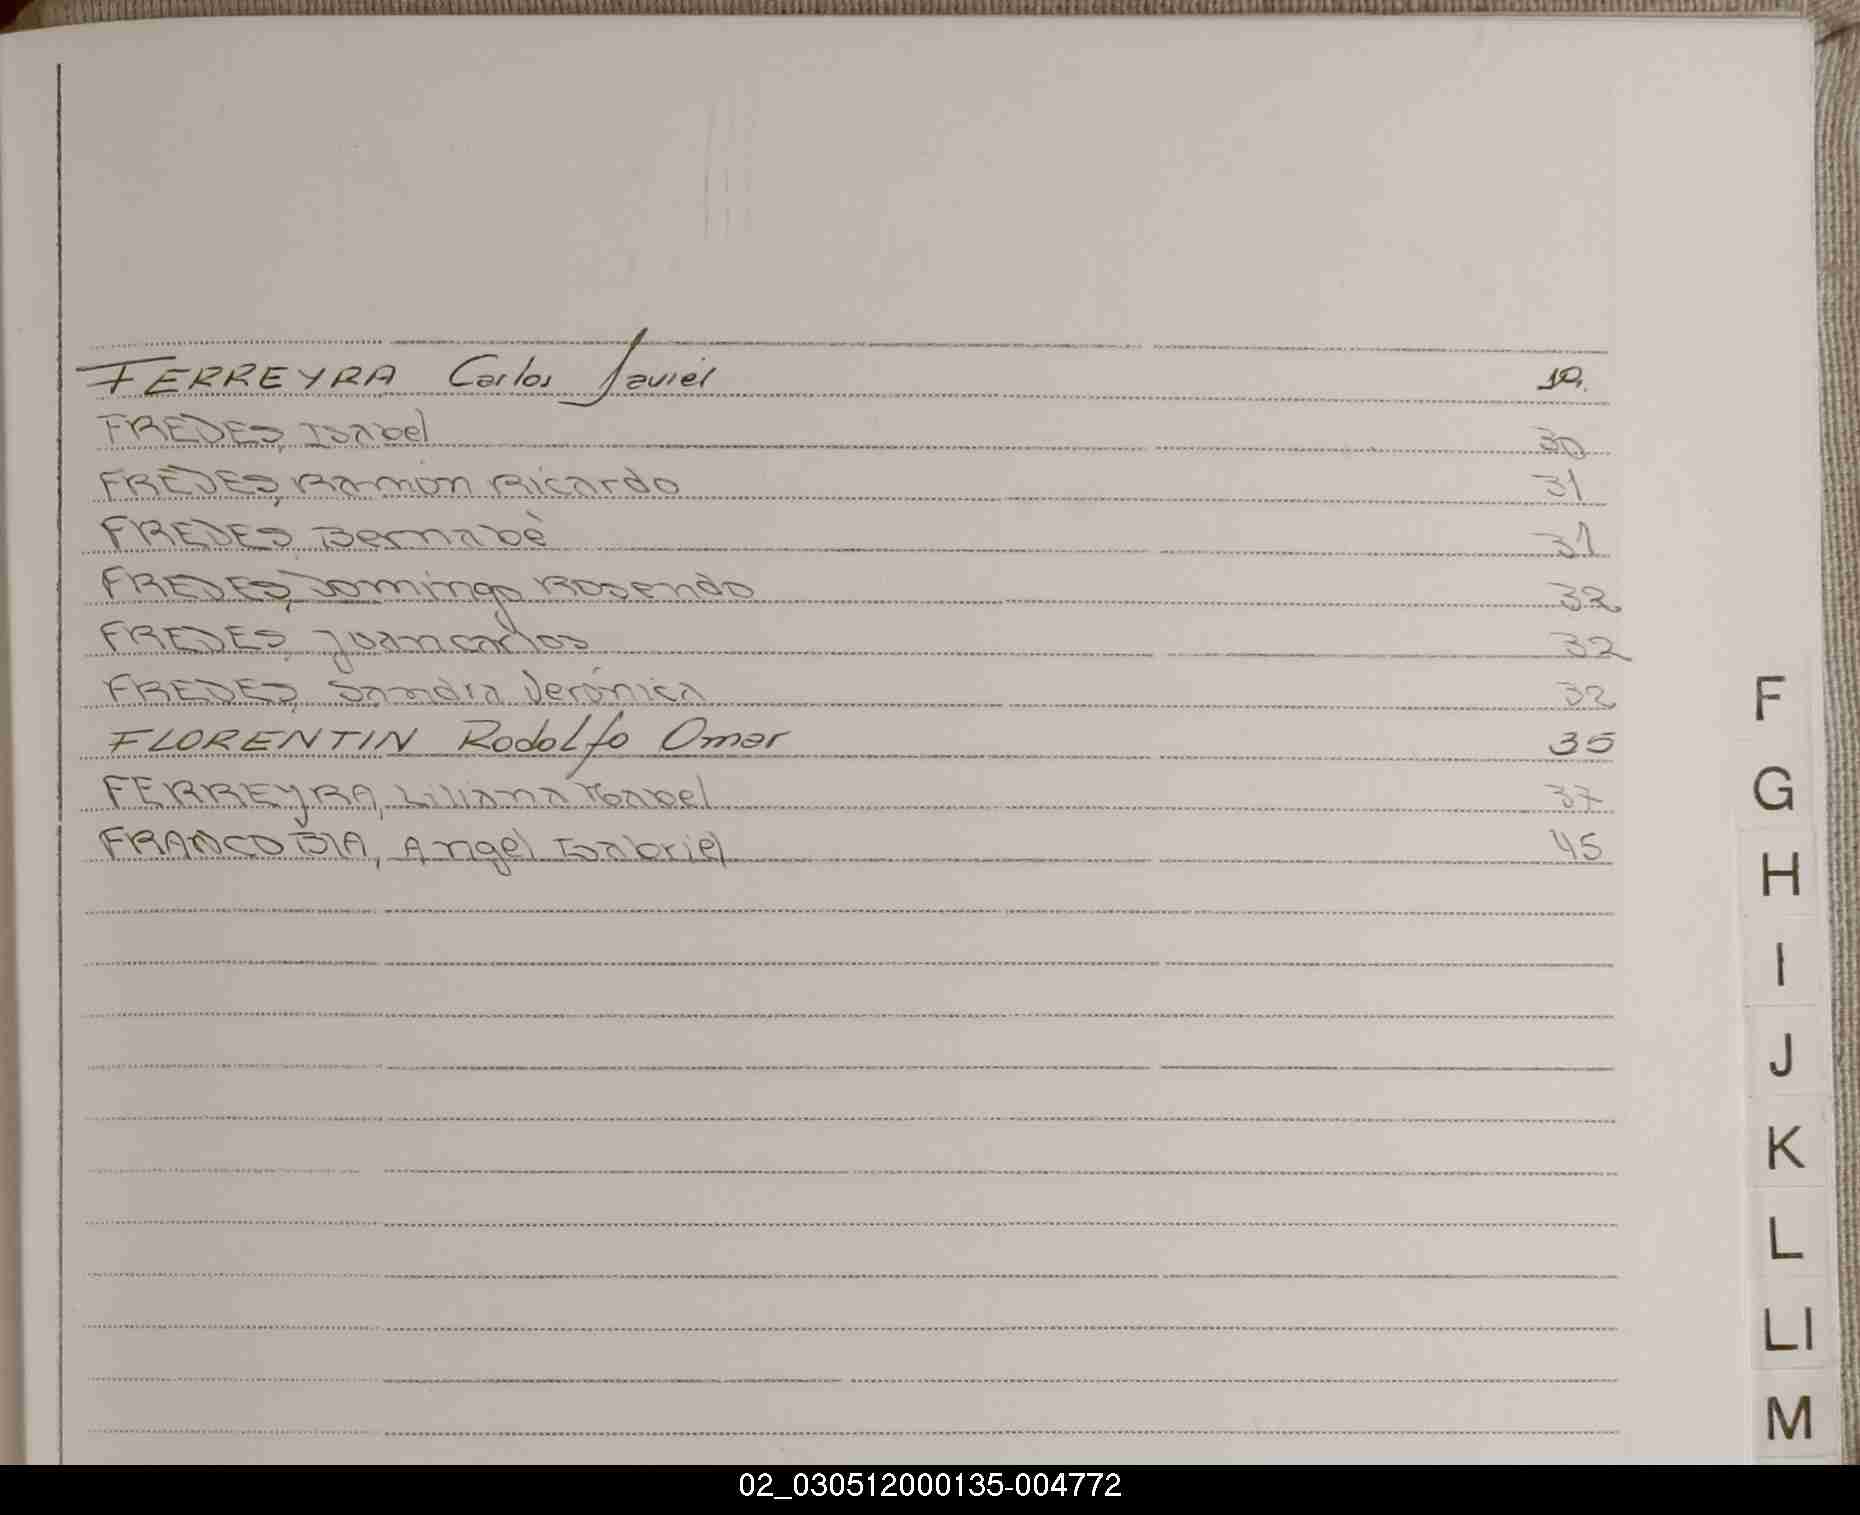 FERREYRA Carlos Javier 10.
FREDES, Isabel 30
FREDES, Ramón Ricardo 31
FREDES, Bernabè 31
FREDES, Domingo Rosendo 32
FREDES, Juan carlos 32
FREDES, Sandra Verónica 32
FLORENTIN Rodolfo Omar 35
FERREyRA, Liliana Isabel 37
FRANCO BIA, Angel Gabriel 45
F
G
H
I
J
K
L
Ll
M
02_030512000135-004772